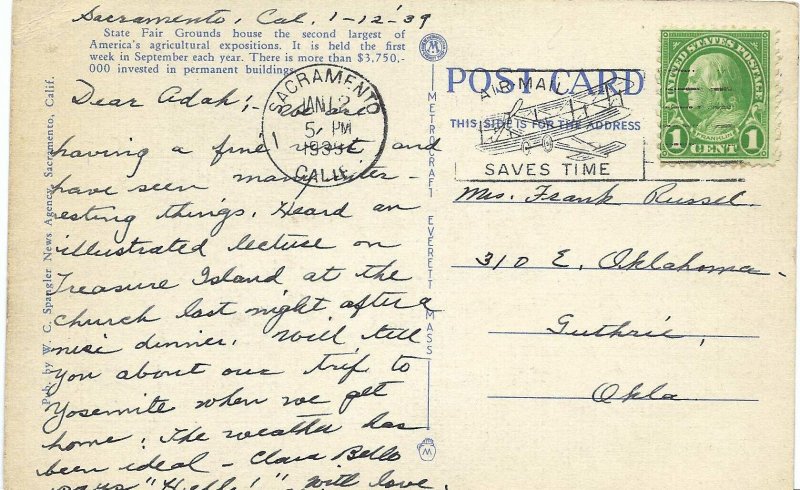 Sacramento, Cal. 1-12-'39
State Fair Grounds house the second largest of
America's agricultural expositions. It is held the first
week in September each year. There is more than $3,750,-
000 invested in permanent buildings.
Dear Adah;- We are
having a fine visit and
have seen many inter-
esting things. Heard an
illustrated lecture on
Treasure Island at the
church last night after a
nice dinner. Will tell
you about our trip to
Yosemite when we get
home. The weather has
been ideal - Clara Belle
says "Hello!" With love.
Pub. by W. C. Spangler News Agency, Sacramento, Calif.
METROCRAFT EVERETT MASS
M
SACRAMENTO
JAN 12
5 PM
1939
CALIF.
1
POST CARD
THIS SIDE IS FOR THE ADDRESS
AIR MAIL
SAVES TIME
UNITED STATES POSTAGE
FRANKLIN
1 CENT 1
Mrs. Frank Russel
310 E. Oklahoma-
Guthrie,
Okla